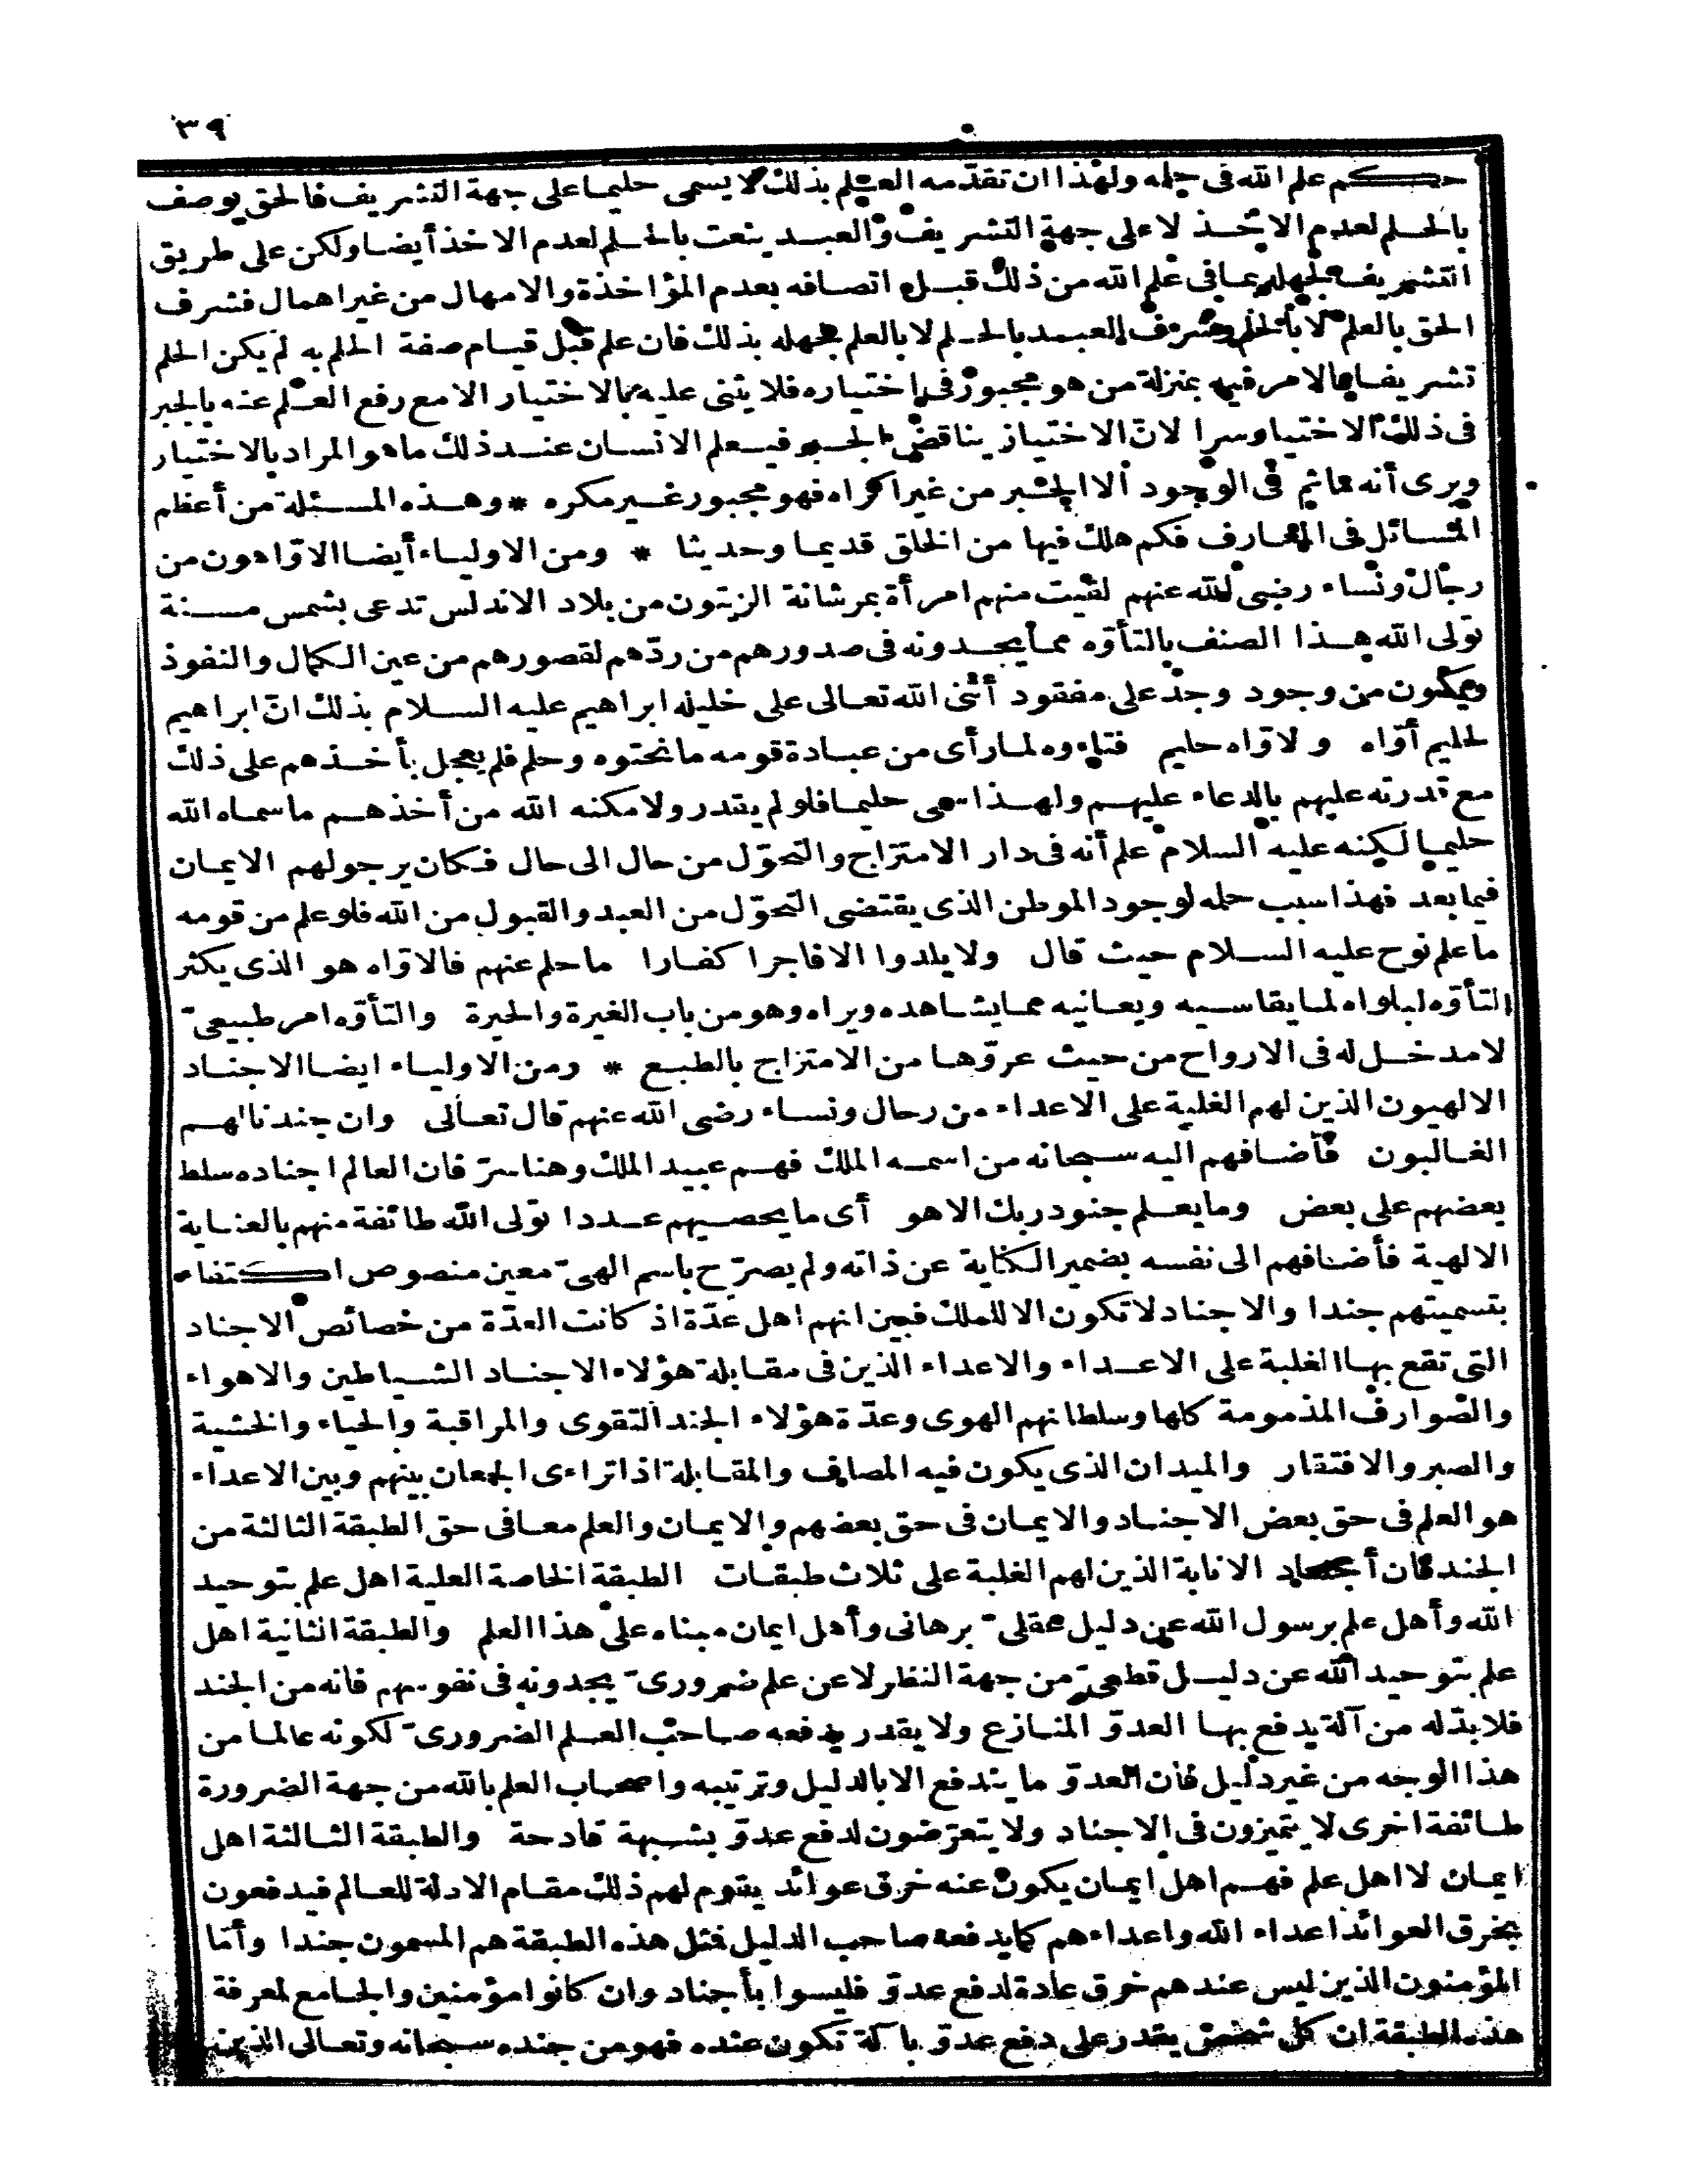 ٣٩
حكم علم الله فى حلمه ولهذا ان تقدّمه العلم بذلك لا يسمى حليما على جهة التشريف فالحق يوصف
بالحلم لعدم الاخذ لا على جهة التشريف والعبد ينعت بالحلم لعدم الاخذ أيضا ولكن على طريق
التشريف لجهله بما فى علم الله من ذلك قبل اتصافه بعدم المؤاخذة والامهال من غير اهمال فشرف
الحق بالعلم لا بالحلم وشرف العبد بالحلم لا بالعلم لجهله بذلك فان علم قبل قيام صفة الحلم به لم يكن الحلم
تشريفا فالامر فيه بمنزلة من هو مجبور فى اختياره فلا يثنى عليه بالاختيار الا مع رفع العلم عنه بالجبر
فى ذلك الاختيار لانّ الاختيار يناقض الجبر فيعلم الانسان عند ذلك ما هو المراد بالاختيار
ويرى أنه ما ثم فى الوجود الا الجبر من غير اكراه فهو مجبور غير مكره * وهذه المسئلة من أعظم
المسائل فى المعارف فكم هلك فيها من الخلق قديما وحديثا * ومن الاولياء أيضا الاوّاهون من
رجال ونساء رضى الله عنهم لقيت منهم امرأة بمرشانة الزيتون من بلاد الاندلس تدعى بشمس مسنة
تولى الله هذا الصنف بالتأوّه مما يجدونه فى صدورهم من ردّهم لقصورهم من عين الكمال والنفوذ
ويكون من وجود وجد على مفقود أثنى الله تعالى على خليله ابراهيم عليه السلام بذلك انّ ابراهيم
لحليم أوّاه ولاوّاه حليم فتاوه لما رأى من عبادة قومه ما نحتوه وحلم فلم يعجل بأخذهم على ذلك
مع قدرته عليهم بالدعاء عليهم ولهذا سمى حليما فلو لم يقدر ولا مكنه الله من أخذهم ما سماه الله
حليما لكنه عليه السلام علم أنه فى دار الامتزاج والتحوّل من حال الى حال فكان يرجو لهم الايمان
فيما بعد فهذا سبب حلمه لوجود الموطن الذى يقتضى التحوّل من العبد والقبول من الله فلو علم من قومه
ما علم نوح عليه السلام حيث قال ولا يلدوا الا فاجرا كفارا ما حلم عنهم فالاوّاه هو الذى يكثر
التأوّه لبلواه لما يقاسيه ويعانيه مما يشاهده ويراه وهو من باب الغيرة والحيرة والتأوّه امر طبيعىّ
لا مدخل له فى الارواح من حيث عروّها من الامتزاج بالطبع * ومن الاولياء ايضا الاجناد
الالهيون الذين لهم الغلبة على الاعداء من رجال ونساء رضى الله عنهم قال تعالى وان جندنا لهم
الغالبون فأضافهم اليه سبحانه من اسمه الملك فهم عبيد الملك وهنا سرّ فان العالم اجناده سلط
بعضهم على بعض وما يعلم جنود ربك الا هو أى ما يحصيهم عددا تولى الله طائفة منهم بالعناية
الالهية فأضافهم الى نفسه بضمير الكناية عن ذاته ولم يصرّح باسم الهىّ معين منصوص اكتفاء
بتسميتهم جندا والاجناد لا تكون الا للملك فبين انهم اهل عدّة اذ كانت العدّة من خصائص الاجناد
التى تقع بها الغلبة على الاعداء والاعداء الذين فى مقابلة هؤلاء الاجناد الشياطين والاهواء
والصوارف المذمومة كلها وسلطانهم الهوى وعدّة هؤلاء الجند التقوى والمراقبة والحياء والخشية
والصبر والافتقار والميدان الذى يكون فيه المصاف والمقابلة اذا تراءى الجمعان بينهم وبين الاعداء
هو العلم فى حق بعض الاجناد والايمان فى حق بعضهم والايمان والعلم معا فى حق الطبقة الثالثة من
الجند فان أجناد الانابة الذين لهم الغلبة على ثلاث طبقات الطبقة الخاصة العلية اهل علم بتوحيد
الله وأهل علم برسول الله عن دليل عقلىّ برهانى وأهل ايمان مبناه على هذا العلم والطبقة الثانية اهل
علم بتوحيد الله عن دليل قطعىّ من جهة النظر لا عن علم ضرورىّ يجدونه فى نفوسهم فانه من الجند
فلا بدّ له من آلة يدفع بها العدوّ المنازع ولا يقدر يدفعه صاحب العلم الضرورىّ لكونه عالما من
هذا الوجه من غير دليل فان العدوّ ما يندفع الا بالدليل وترتيبه واصحاب العلم بالله من جهة الضرورة
طائفة اخرى لا يتميزون فى الاجناد ولا يتعرّضون لدفع عدوّ بشبهة قادحة والطبقة الثالثة اهل
ايمان لا اهل علم فهم اهل ايمان يكون عنه خرق عوائد يقوم لهم ذلك مقام الادلة للعالم فيدفعون
بخرق العوائد اعداء الله واعداءهم كما يدفعه صاحب الدليل فمثل هذه الطبقة هم المسمون جندا وأمّا
المؤمنون الذين ليس عندهم خرق عادة لدفع عدوّ فليسوا بأجناد وان كانوا مؤمنين والجامع لمعرفة
هذه الطبقة ان كل شخص يقدر على دفع عدوّ بآلة تكون عنده فهو من جنده سبحانه وتعالى الذين